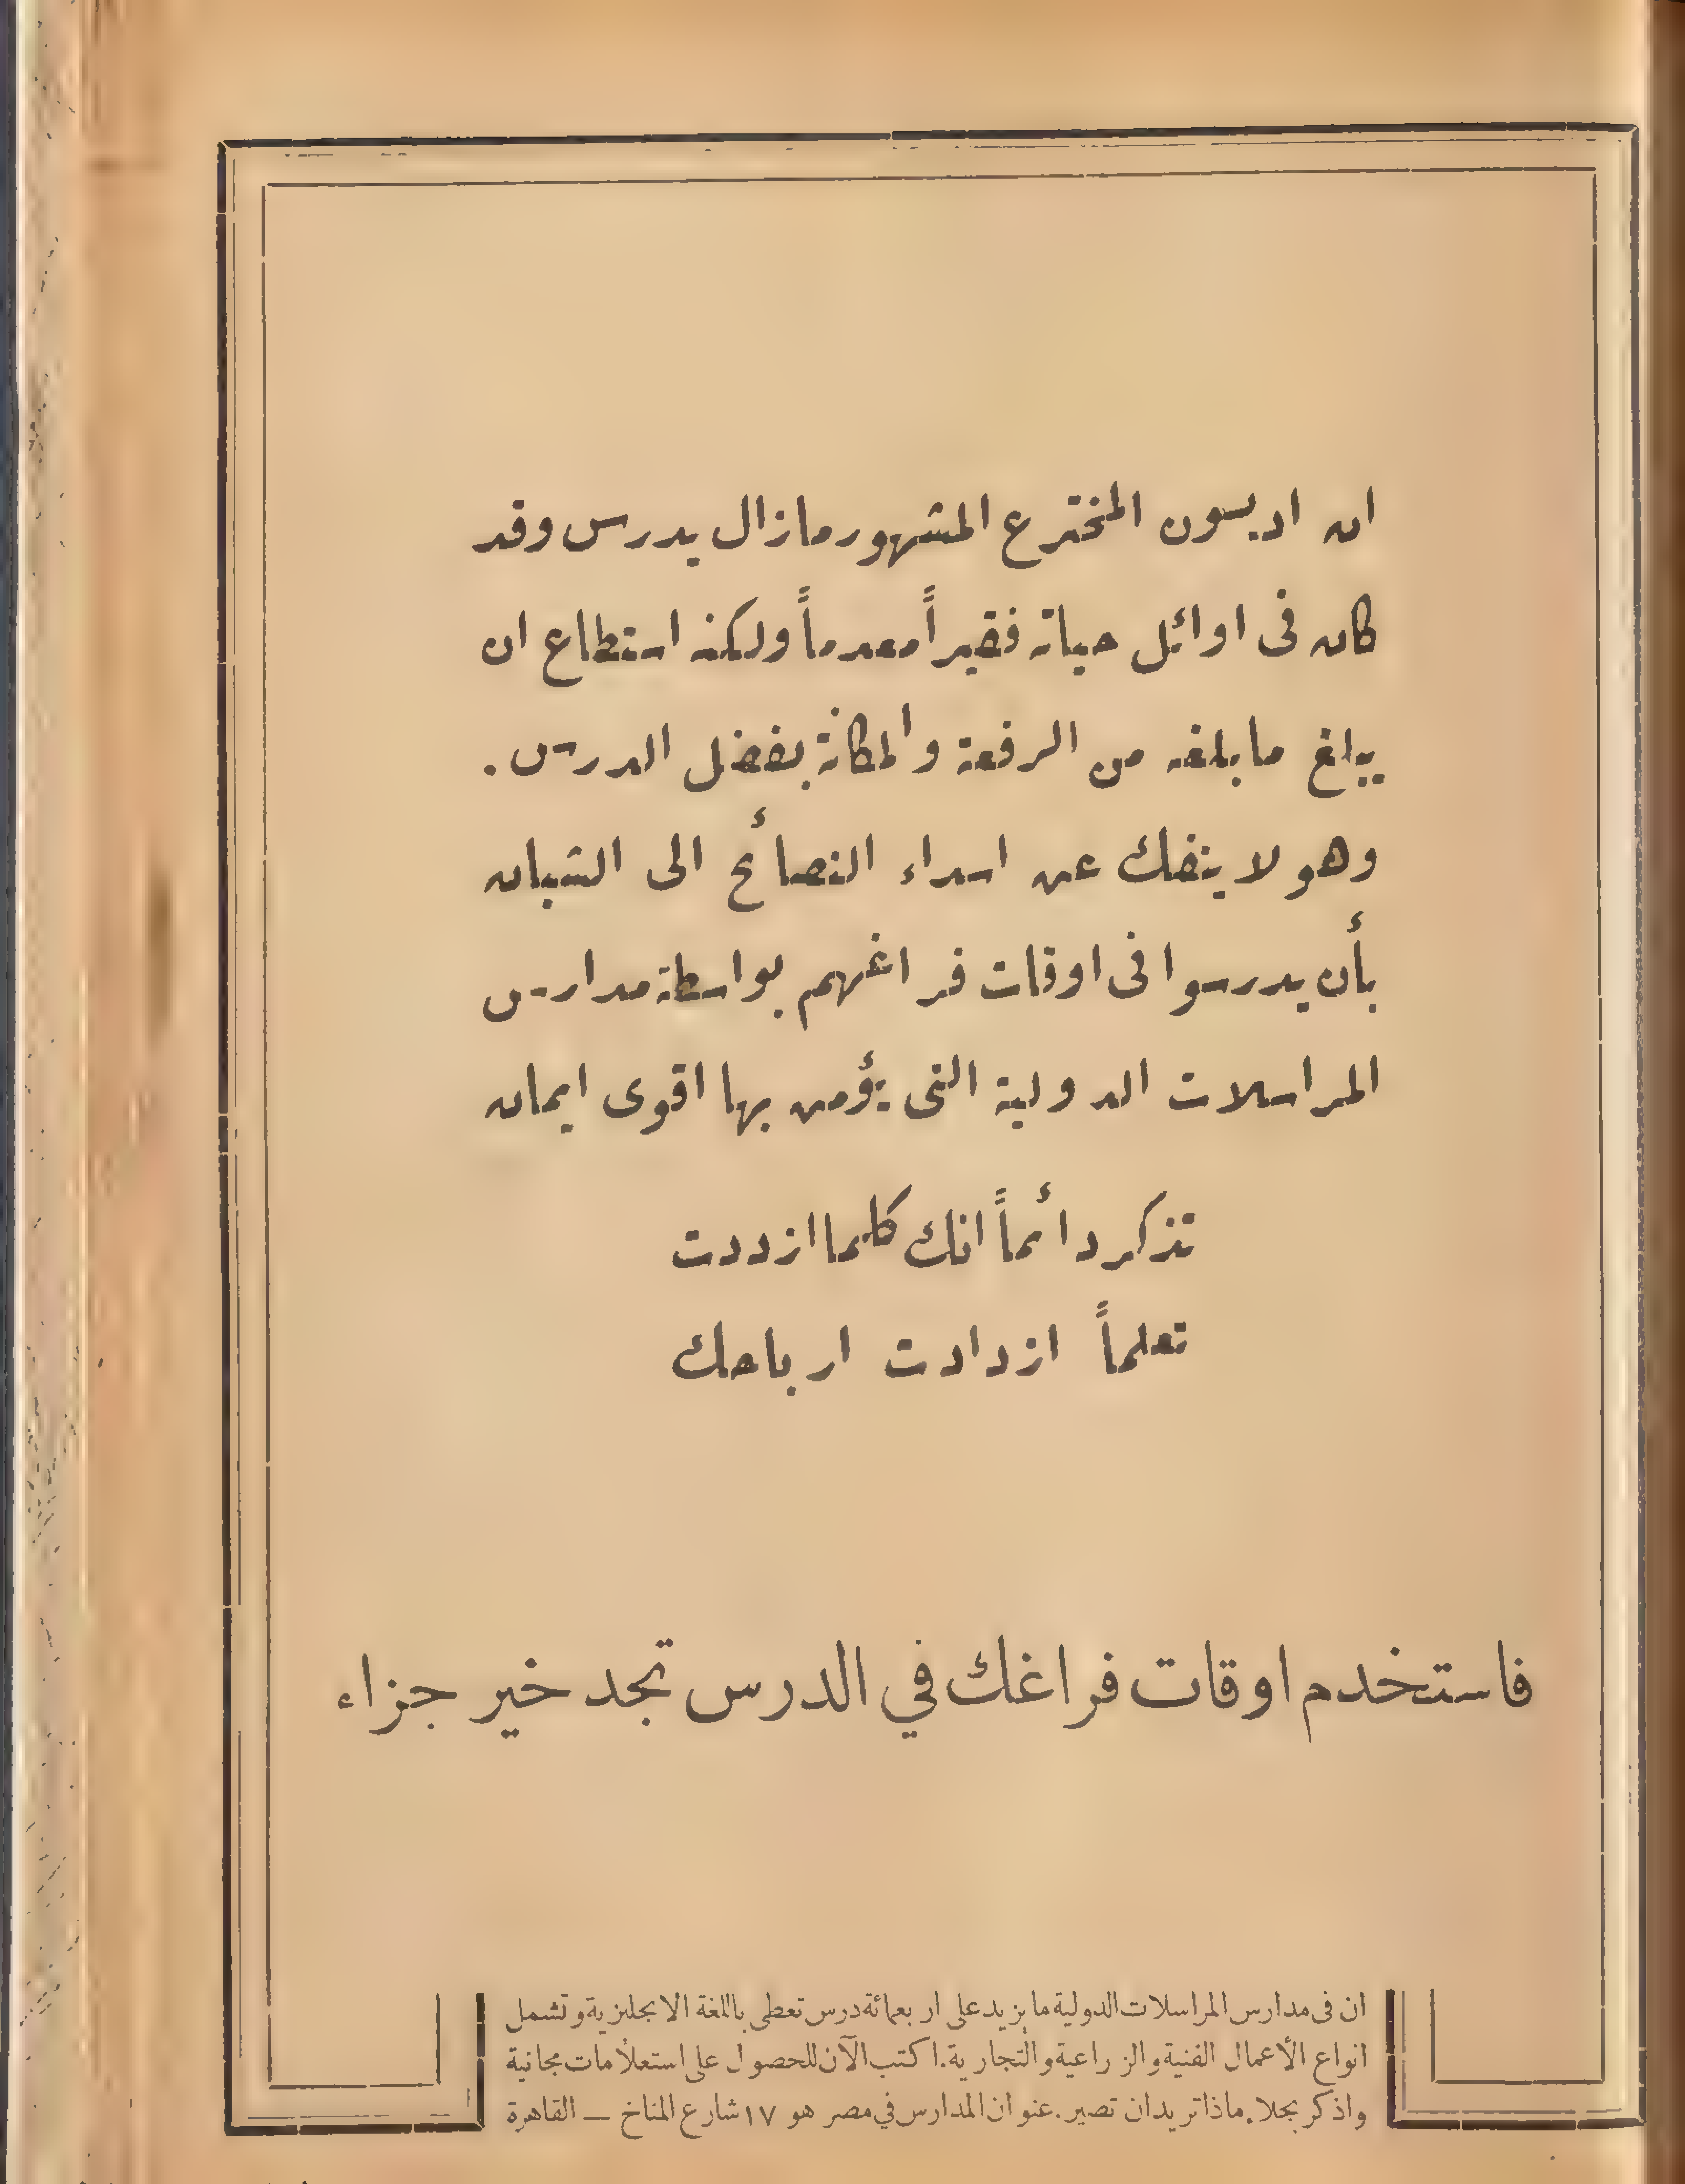 ان اديسون المخترع المشهور مازال يدرس وقد
كان فى اوائل حياته فقيراً معدماً ولكنه استطاع ان
يبلغ مابلغه من الرفعة والمكانة بفضل الدرس .
وهو لا ينفك عن اسداء النصائح الى الشبان
بأن يدرسوا فى اوقات فراغهم بواسطة مدارس
المراسلات الدولية التى يؤمن بها اقوى ايمان
تذكر دائماً انك كلما ازددت
تعلماً ازدادت ارباحك
فاستخدم اوقات فراغك في الدرس تجد خير جزاء
ان فى مدارس المراسلات الدولية مايزيد على اربعمائة درس تعطى باللغة الانجليزية وتشمل
انواع الأعمال الفنية والزراعية والتجارية. اكتب الآن للحصول على استعلامات مجانية
واذكر بجلاء ماذا تريد ان تصير . عنوان المدارس في مصر هو ١٧ شارع المناخ — القاهرة